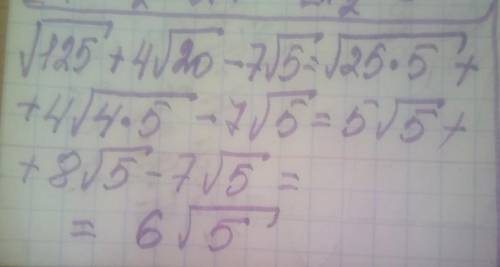 √125 + 4√20 - 7√5 = √25·5 +
+ 4√4·5 - 7√5 = 5√5 +
+ 8√5 - 7√5 =
= 6√5